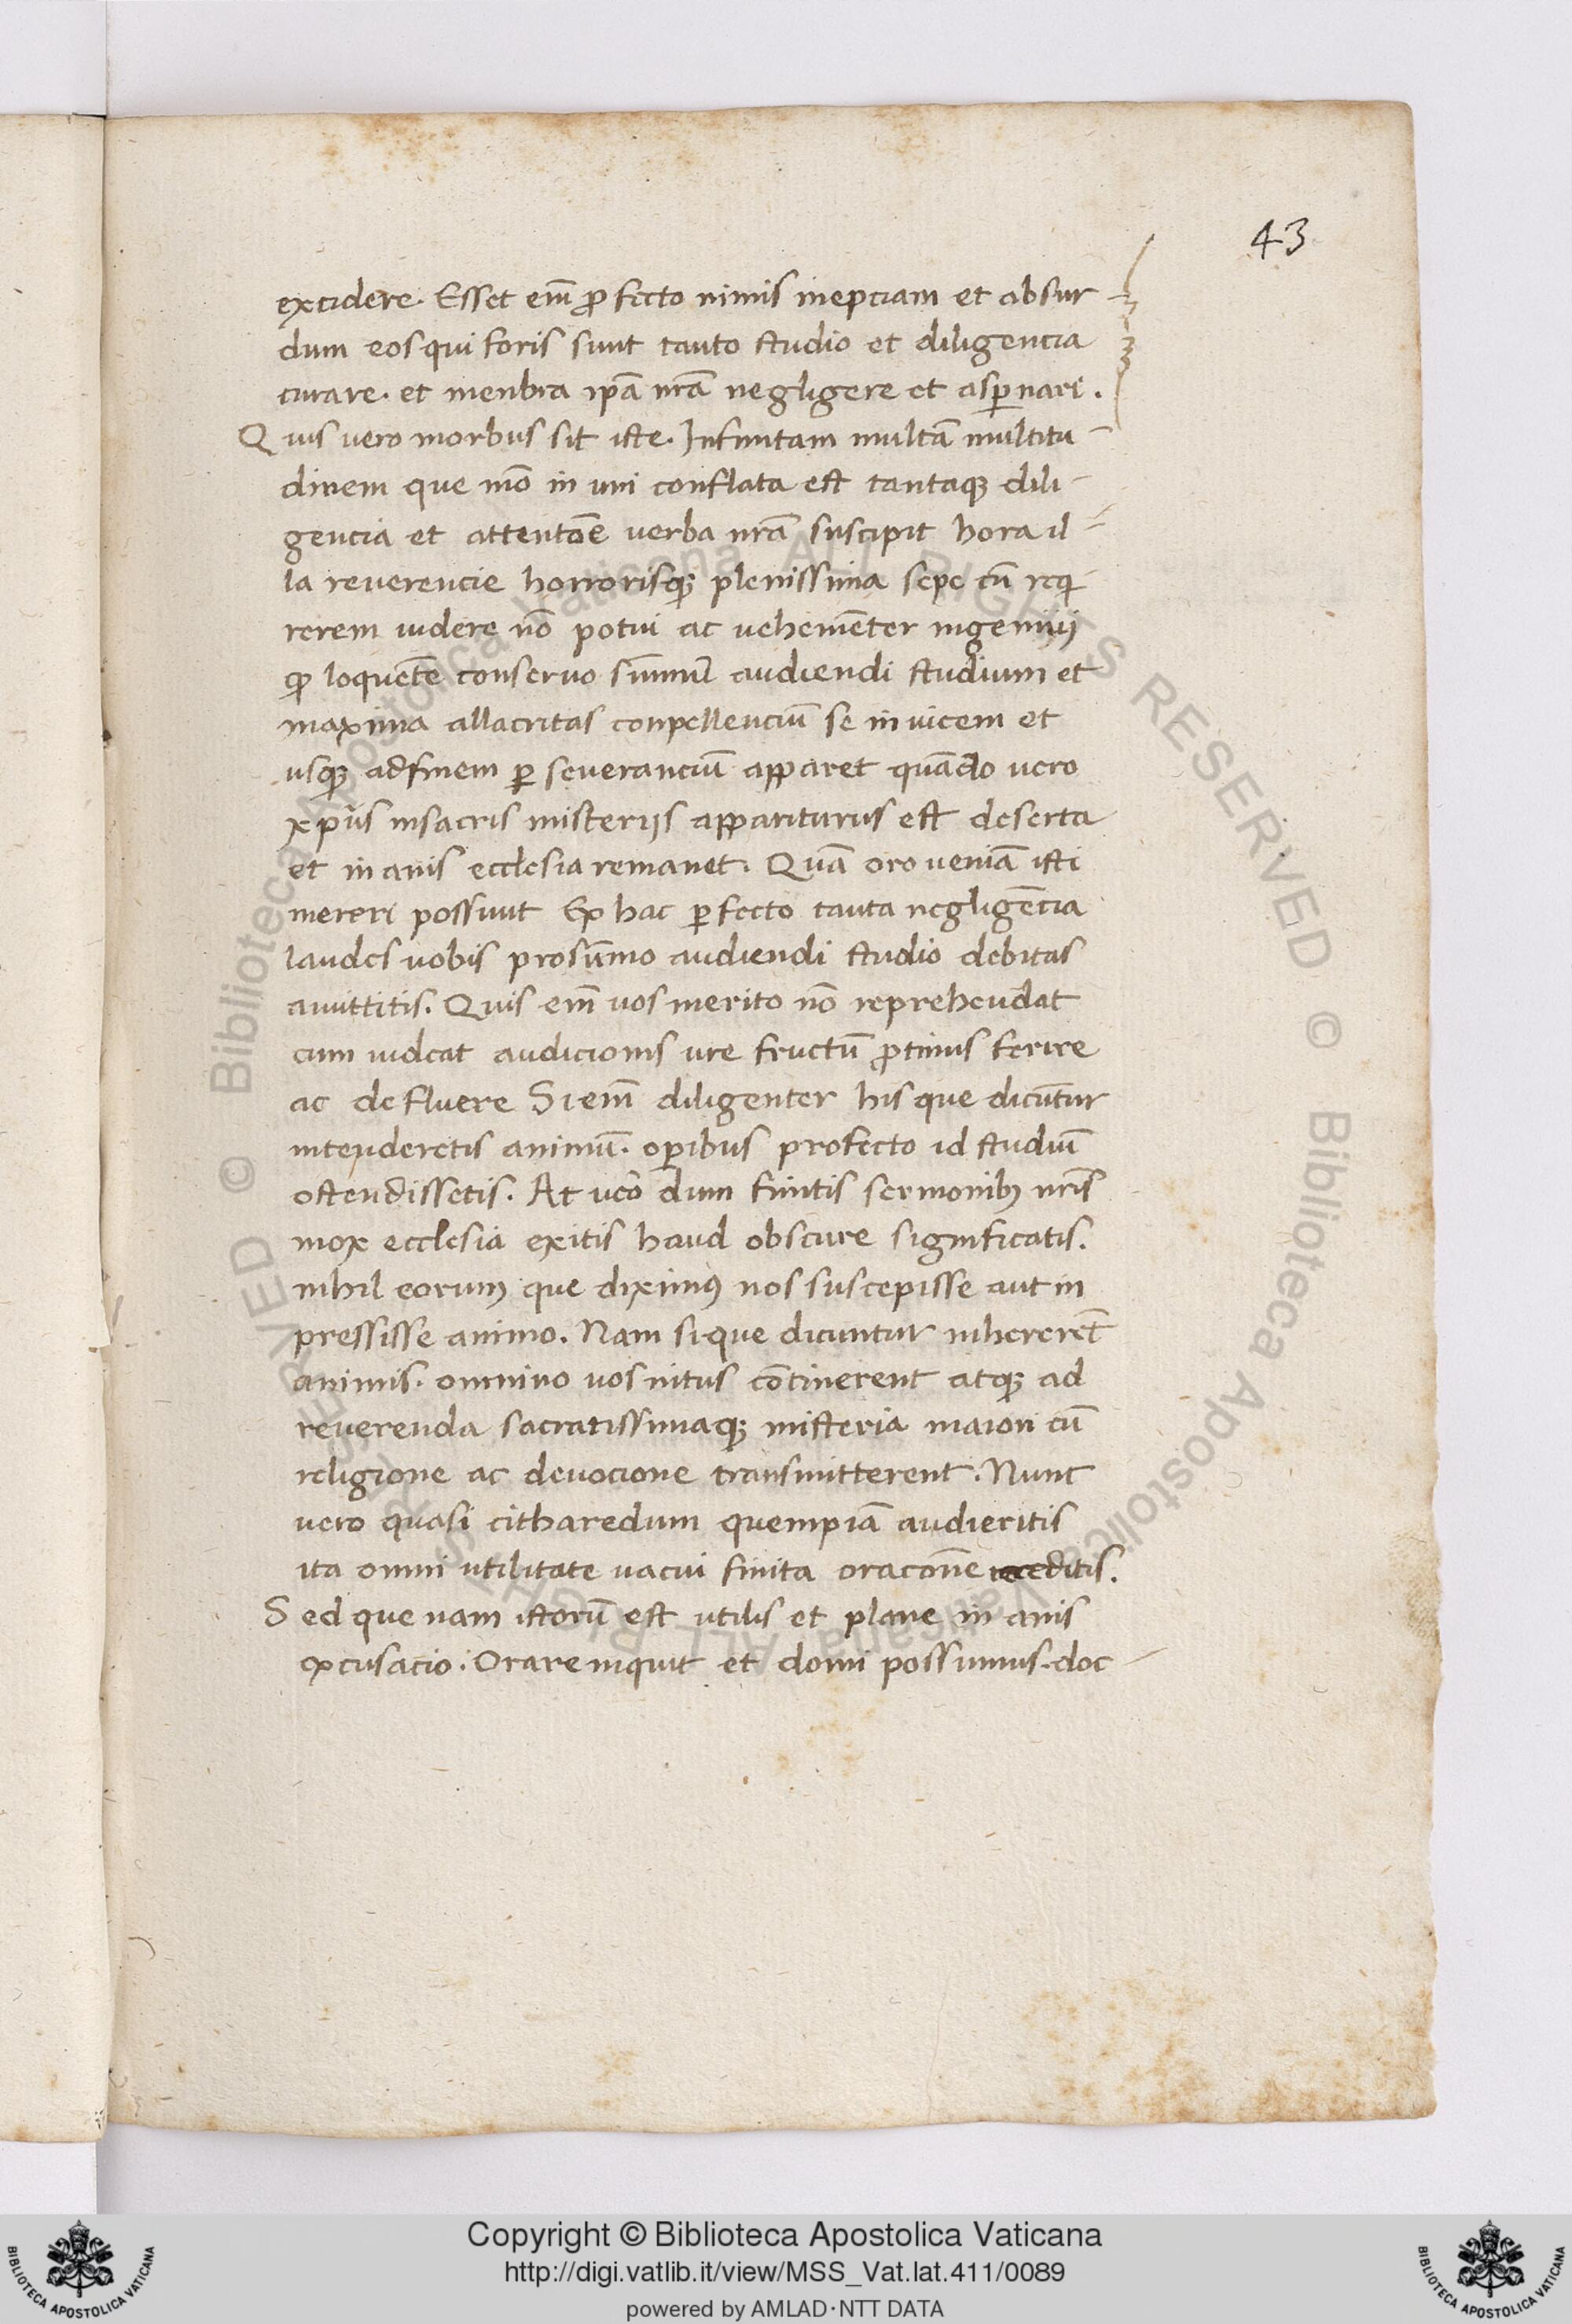 43
excidere. Esset em̄ ꝓfecto nimis inepciam et absur-
dum eos qui foris sunt tanto studio et diligencia
curare. et menbra ip̄a nr̄a negligere et asꝑnari.
Quis vero morbus sit iste. Infinitam multā multitu-
dinem que mō in uni conflata est tantaqꝫ dili-
gencia et attentōe verba nr̄a suscipit hora il-
la reverencie horrorisqꝫ plenissima sepe cū reqi-
rerem uidere nō potui ac vehemēter ingemui
ꝙ loquētē conservo sūmum audiendi studium et
maxima allacritas conpellenciū se in vicem et
usqꝫ ad finem ꝑseveranciū apparet quādo vero
xp̄us in sacris misteriis appariturus est deserta
et in anis ecclesia remanet. Quā oro veniā isti
mereri possunt Ex hac ꝑfecto tanta negligēcia
laudes vobis pro sūmo audiendi studio debitas
amittitis. Quis em̄ vos merito nō reprehendat
cum uideat audicionis vr̄e fructū ꝓtinus ferire
ac defluere Si em̄ diligenter his que dicūtur
intenderetis animū. oꝑibus profecto id studiū
ostendissetis. At vero dum finitis sermonibꝰ nr̄is
mox ecclesia exitis haud obscure significatis.
nihil eorum que diximꝰ nos suscepisse aut in
pressisse animo. Nam si que dicuntur inhererēt
animis. omnino vos intus cōtinerent atqꝫ ad
reverenda sacratissimaqꝫ misteria maiori cū
religione ac devocione transmitterent. Nunc
vero quasi citharedum quempiā audieritis
ita omni utilitate vacui finita oracōne receditis.
Sed que nam istorū est utilis et plane in anis
excusacio. Orare inquit et domi possumus. doc-
Copyright © Biblioteca Apostolica Vaticana
http://digi.vatlib.it/view/MSS_Vat.lat.411/0089
powered by AMLAD·NTT DATA